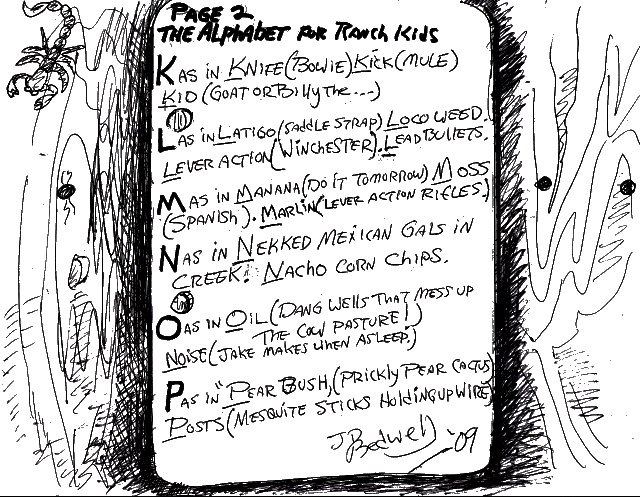 PAGE 2
THE ALPHABET FOR RANCH KIDS
K AS IN KNIFE (BOWIE) KICK (MULE)
KID (GOAT OR BILLY THE ---)
L AS IN LATIGO (SADDLE STRAP) LOCO WEED.
LEVER ACTION (WINCHESTER). LEAD BULLETS.
M AS IN MANANA (DO IT TOMORROW) MOSS
(SPANISH). MARLIN (LEVER ACTION RIFLES.)
N AS IN NEKKED MEXICAN GALS IN
CREEK! NACHO CORN CHIPS.
O AS IN OIL (DANG WELLS THAT MESS UP
THE COW PASTURE!)
NOISE (JAKE MAKES WHEN ASLEEP.)
P AS IN "PEAR BUSH, (PRICKLY PEAR CACTUS)
POSTS (MESQUITE STICKS HOLDING UP WIRE)
J Bedwell '09